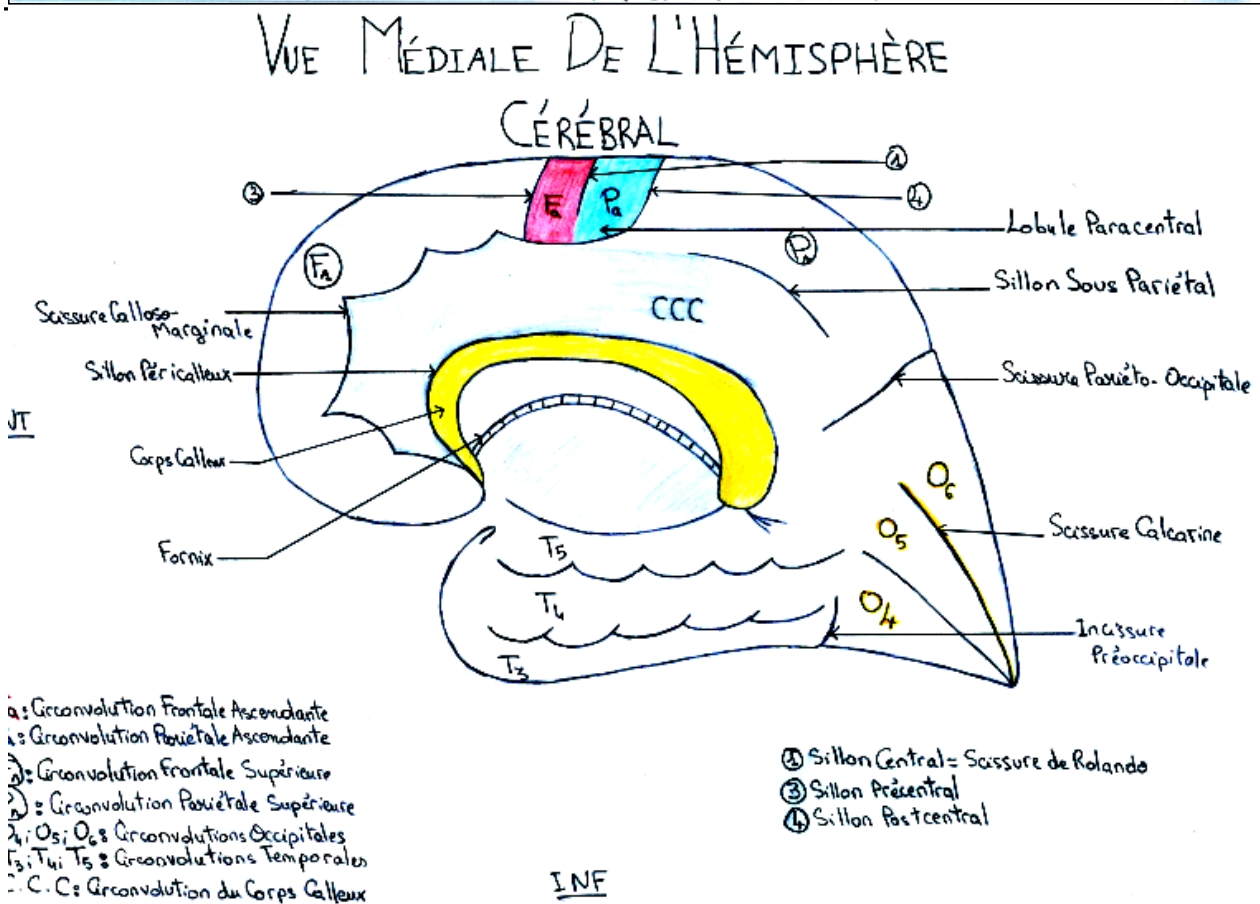 VUE MÉDIALE DE L'HÉMISPHÈRE
CÉRÉBRAL
①
③
④
Fa
Pa
Lobule Paracentral
F1
P1
Sillon Sous Pariétal
CCC
Scissure Calloso-
Marginale
Sillon Péricalleux
Scissure Pariéto-Occipitale
NT
Corps Calleux
O6
O5
Scissure Calcarine
Fornix
T5
T4
O4
Incissure
Préoccipitale
T3
a: Circonvolution Frontale Ascendante
: Circonvolution Pariétale Ascendante
: Circonvolution Frontale Supérieure
: Circonvolution Pariétale Supérieure
O4; O5; O6: Circonvolutions Occipitales
T3; T4; T5: Circonvolutions Temporales
C.C.C: Circonvolution du Corps Calleux
① Sillon Central = Scissure de Rolando
③ Sillon Précentral
④ Sillon Postcentral
INF